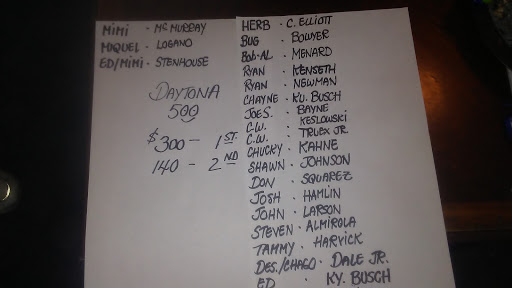 MIMI - MCMURRAY
MIQUEL - LOGANO
ED/MIMI - STENHOUSE
DAYTONA
500
$300 - 1ST
140 - 2ND
HERB - C. ELLIOTT
BUG - BOWYER
BOB-AL - MENARD
RYAN - KENSETH
RYAN - NEWMAN
CHAYNE - KU. BUSCH
JOE S. - BAYNE
C.W. - KESLOWSKI
C.W. - TRUEX JR.
CHUCKY - KAHNE
SHAWN - JOHNSON
DON - SQUAREZ
JOSH - HAMLIN
JOHN - LARSON
STEVEN - ALMIROLA
TAMMY - HARVICK
DES./CHAGO - DALE JR.
ED - KY. BUSCH